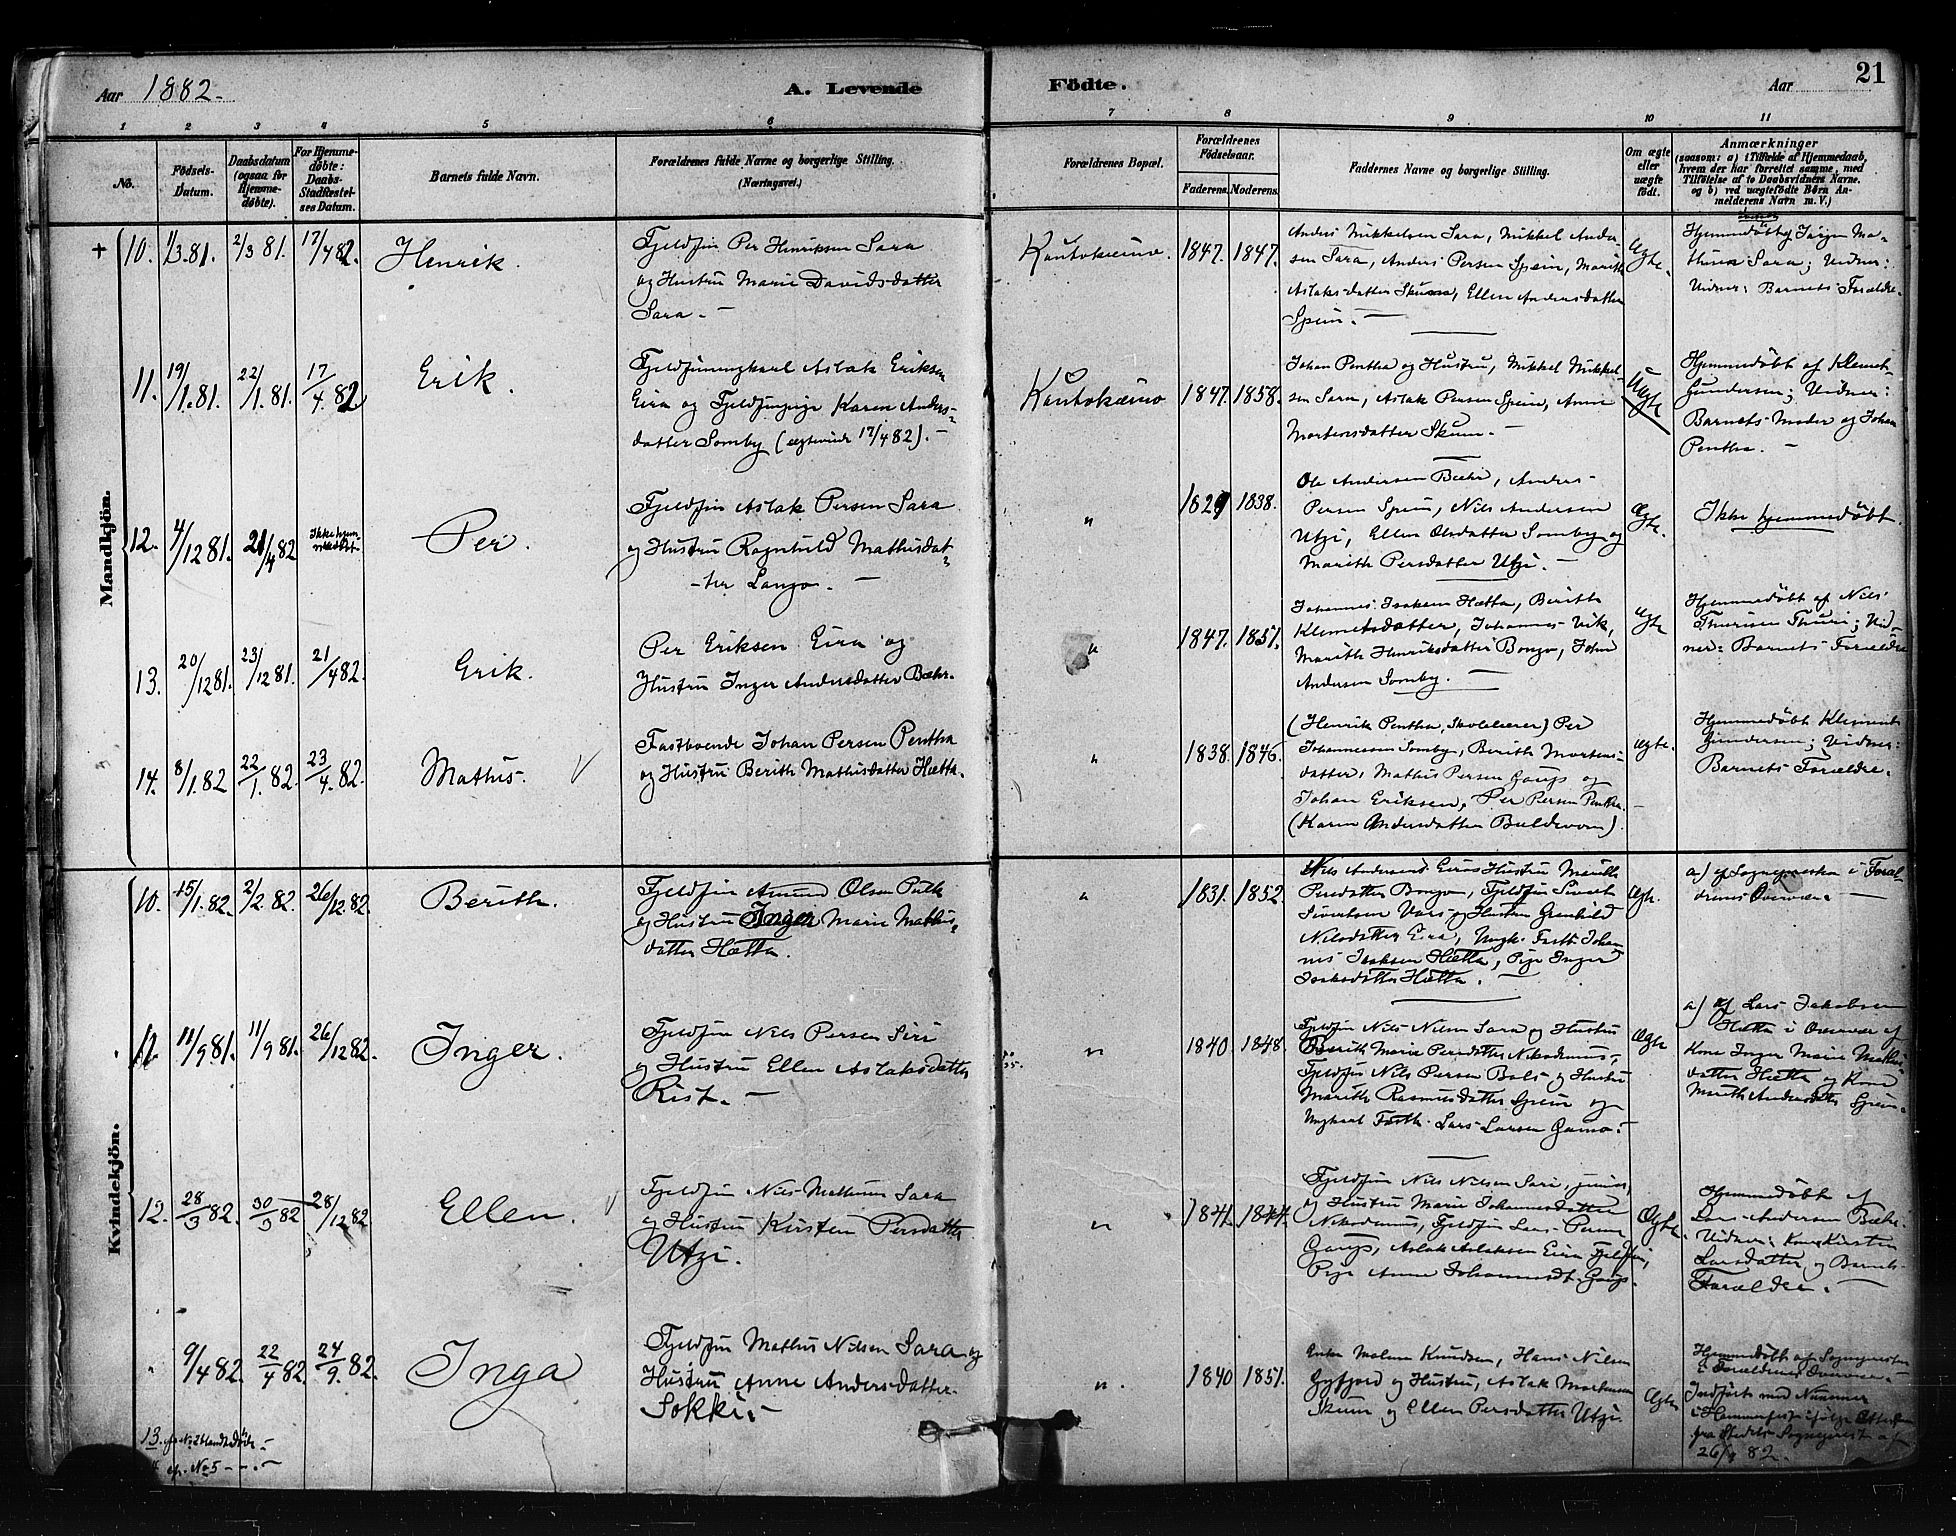 Aar 1882.
A. Levende Födte.
Aar
21
1 2 3 4 5 6 7 8 9 10 11
No.
Födsels-
Datum.
Daabsdatum
(ogsaa for
Hjemme-
døbte).
For Hjemme-
døbte:
Daabs-
Stadfæstel-
ses Datum.
Barnets fulde Navn.
Forældrenes fulde Navne og borgerlige Stilling.
(Næringsvei.)
Forældrenes Bopæl.
Forældrenes
Födselsaar.
Faderens. Moderens.
Faddernes Navne og borgerlige Stilling.
Om ægte
eller
uægte
födt.
Anmærkninger
(saasom: a) i Tilfælde af Hjemmedaab,
hvem der har forrettet samme, med
Tilföielse af to Daabsvidners Navne.
og b) ved uægtefödte Börn An-
melderens Navn m. V.)
Mandkjön.
+ 10. 1/3.81. 2/3 81. 17/4 82.
Henrik.
Fjeldfin Per Henriksen Sara
og Hustru Marie Davidsdatter
Sara. —
Kautokeino. 1847. 1847.
Anders Mikkelsen Sara, Mikkel Ander-
sen Sara, Anders Persen Spein, Marith
Aslaksdatter Skum, Ellen Andersdatter
Spein. —
Ægte.
Hjemmedøbt af Ma-
thies Sara; Vidner:
Vidner: Barnets Forældre.
11. 19/1.81. 22/1.81. 17/4.82
Erik.
Fjeldfinungkarl Aslak Eriksen
Eira og Fjeldfinpige Karen Anders-
datter Somby (ægteviede 17/4 82). —
Kautokeino 1847. 1858.
Johan Pentha og Hustru, Mikkel Mikkel-
sen Sara, Aslak Persen Spein, Anne
Mortensdatter Skum. —
Uægte
Hjemmedøbt af Klemet
Gundersen; Vidner:
Barnets Moder og Johan
Pentha. —
12. 4/12 81. 21/4 82
Per.
Fjeldfin Aslak Persen Sara
og Hustru Ragnhild Mathisdat-
ter Lango. —
" 1829 1838.
Ole Andersen Bæhr, Anders
Persen Spein, Nils Andersen
Utzi, Ellen Olsdatter Somby og
Marith Persdatter Utzi. —
Ægte.
Ikke hjemmedøbt.
13. 20/12 81. 23/12 81. 21/4 82.
Erik.
Per Eriksen Eira og
Hustru Inger Andersdatter Bæhr.
" 1847. 1851.
Johannes Isaksen Hætta, Berith
Klemetsdatter, Johannes Vik,
Marith Henriksdatter Bongo, John
Andersen Somby. —
Ægte
Hjemmedøbt af Nils
Thuresen Thuri; Vid-
ner: Barnets Forældre
14. 8/1.82 22/1.82. 23/4.82.
Mathis. V
Fastboende Johan Persen Pentha
og Hustru Berith Mathisdatter Hætta.
" 1838. 1846.
(Henrik Pentha, Skolelærer) Per
Johannessen Somby, Berith Mortens-
datter, Mathis Persen Gaup og
Johan Eriksen, Per Persen Pentha.
(Karen Andersdatter Buldevom).
Ægte.
Hjemmedøbt Klemet
Gundersen; Vidner:
Barnets Forældre.
Kvindekjön.
10. 15/1.82. 2/2.82. 26/12.82.
Berith.
Fjeldfin Amund Olsen Pulk
og Hustru Inger Marie Mathis-
datter Hætta.
" 1831. 1852.
Nils Andersens Eiras Hustru Marith
Persdatter Bongo, Fjeldfin Sivert
Sivertsen Vars og Hustru Gunhild
Nilsdatter Eira, Ungk. Fastb. Johan-
nes Isaksen Hætta, Pige Inger
Isaksdatter Hætta. —
Ægte.
a) af Sognepresten i Foræl-
drenes Overvær. —
11. 11/9 81. 11/9 81. 26/12 82.
Inger.
Fjeldfin Nils Persen Siri
og Hustru Ellen Aslaksdatter
Rist. —
" 1840 1848.
Fjeldfin Nils Nilsen Sara og Hustru
Berith Marie Persdatter Nikodemus,
Fjeldfin Nils Persen Bals og Hustru
Marith Rasmusdatter Spein og
Ungkarl Fastb. Lars Larsen Gaino.
Ægte
a) af Lars Jakobsen
Hætta i Overvær af
Kone Inger Marie Mathis-
datter Hætta og Kone
Marith Andersdatter Spein.
12. 28/3 82. 30/3 82 28/12 82
Ellen. V
Fjeldfin Nils Mathisen Sara
og Hustru Kirsten Persdatter
Utzi.
" 1841. 1844.
Fjeldfin Nils Nilsen Sara, junior,
og Hustru Marie Johannesdatter
Nikodemus, Fjeldfin Lars Persen
Gaup, Aslak Aslaksen Eira Fjeldfin,
Pige Anne Johannesdt. Gaup.
Ægte.
Hjemmedøbt af
Lars Andersen Bæhr.
Vidner: Kone Kirsten
Larsdatter og Barnets
Forældre. —
" 9/4 82. 22/4 82. 24/9.82.
Inga
Fjeldfin Mathis Nilsen Sara og
Hustru Anne Andersdatter
Sokki. —
" 1840 1851.
Enke Malene Knudsen, Hans Nilsen
Gyfjord og Hustru, Aslak Mortensen
Skum og Ellen Persdatter Utzi.
Ægte
Hjemmedøbt af Sognepresten
i Forældrenes Overvær.
Indført med Nummer
i Hammerfest ifølge Attest
fra Stedets Sogneprest af
26/9 82.
13.
No 5 — . —